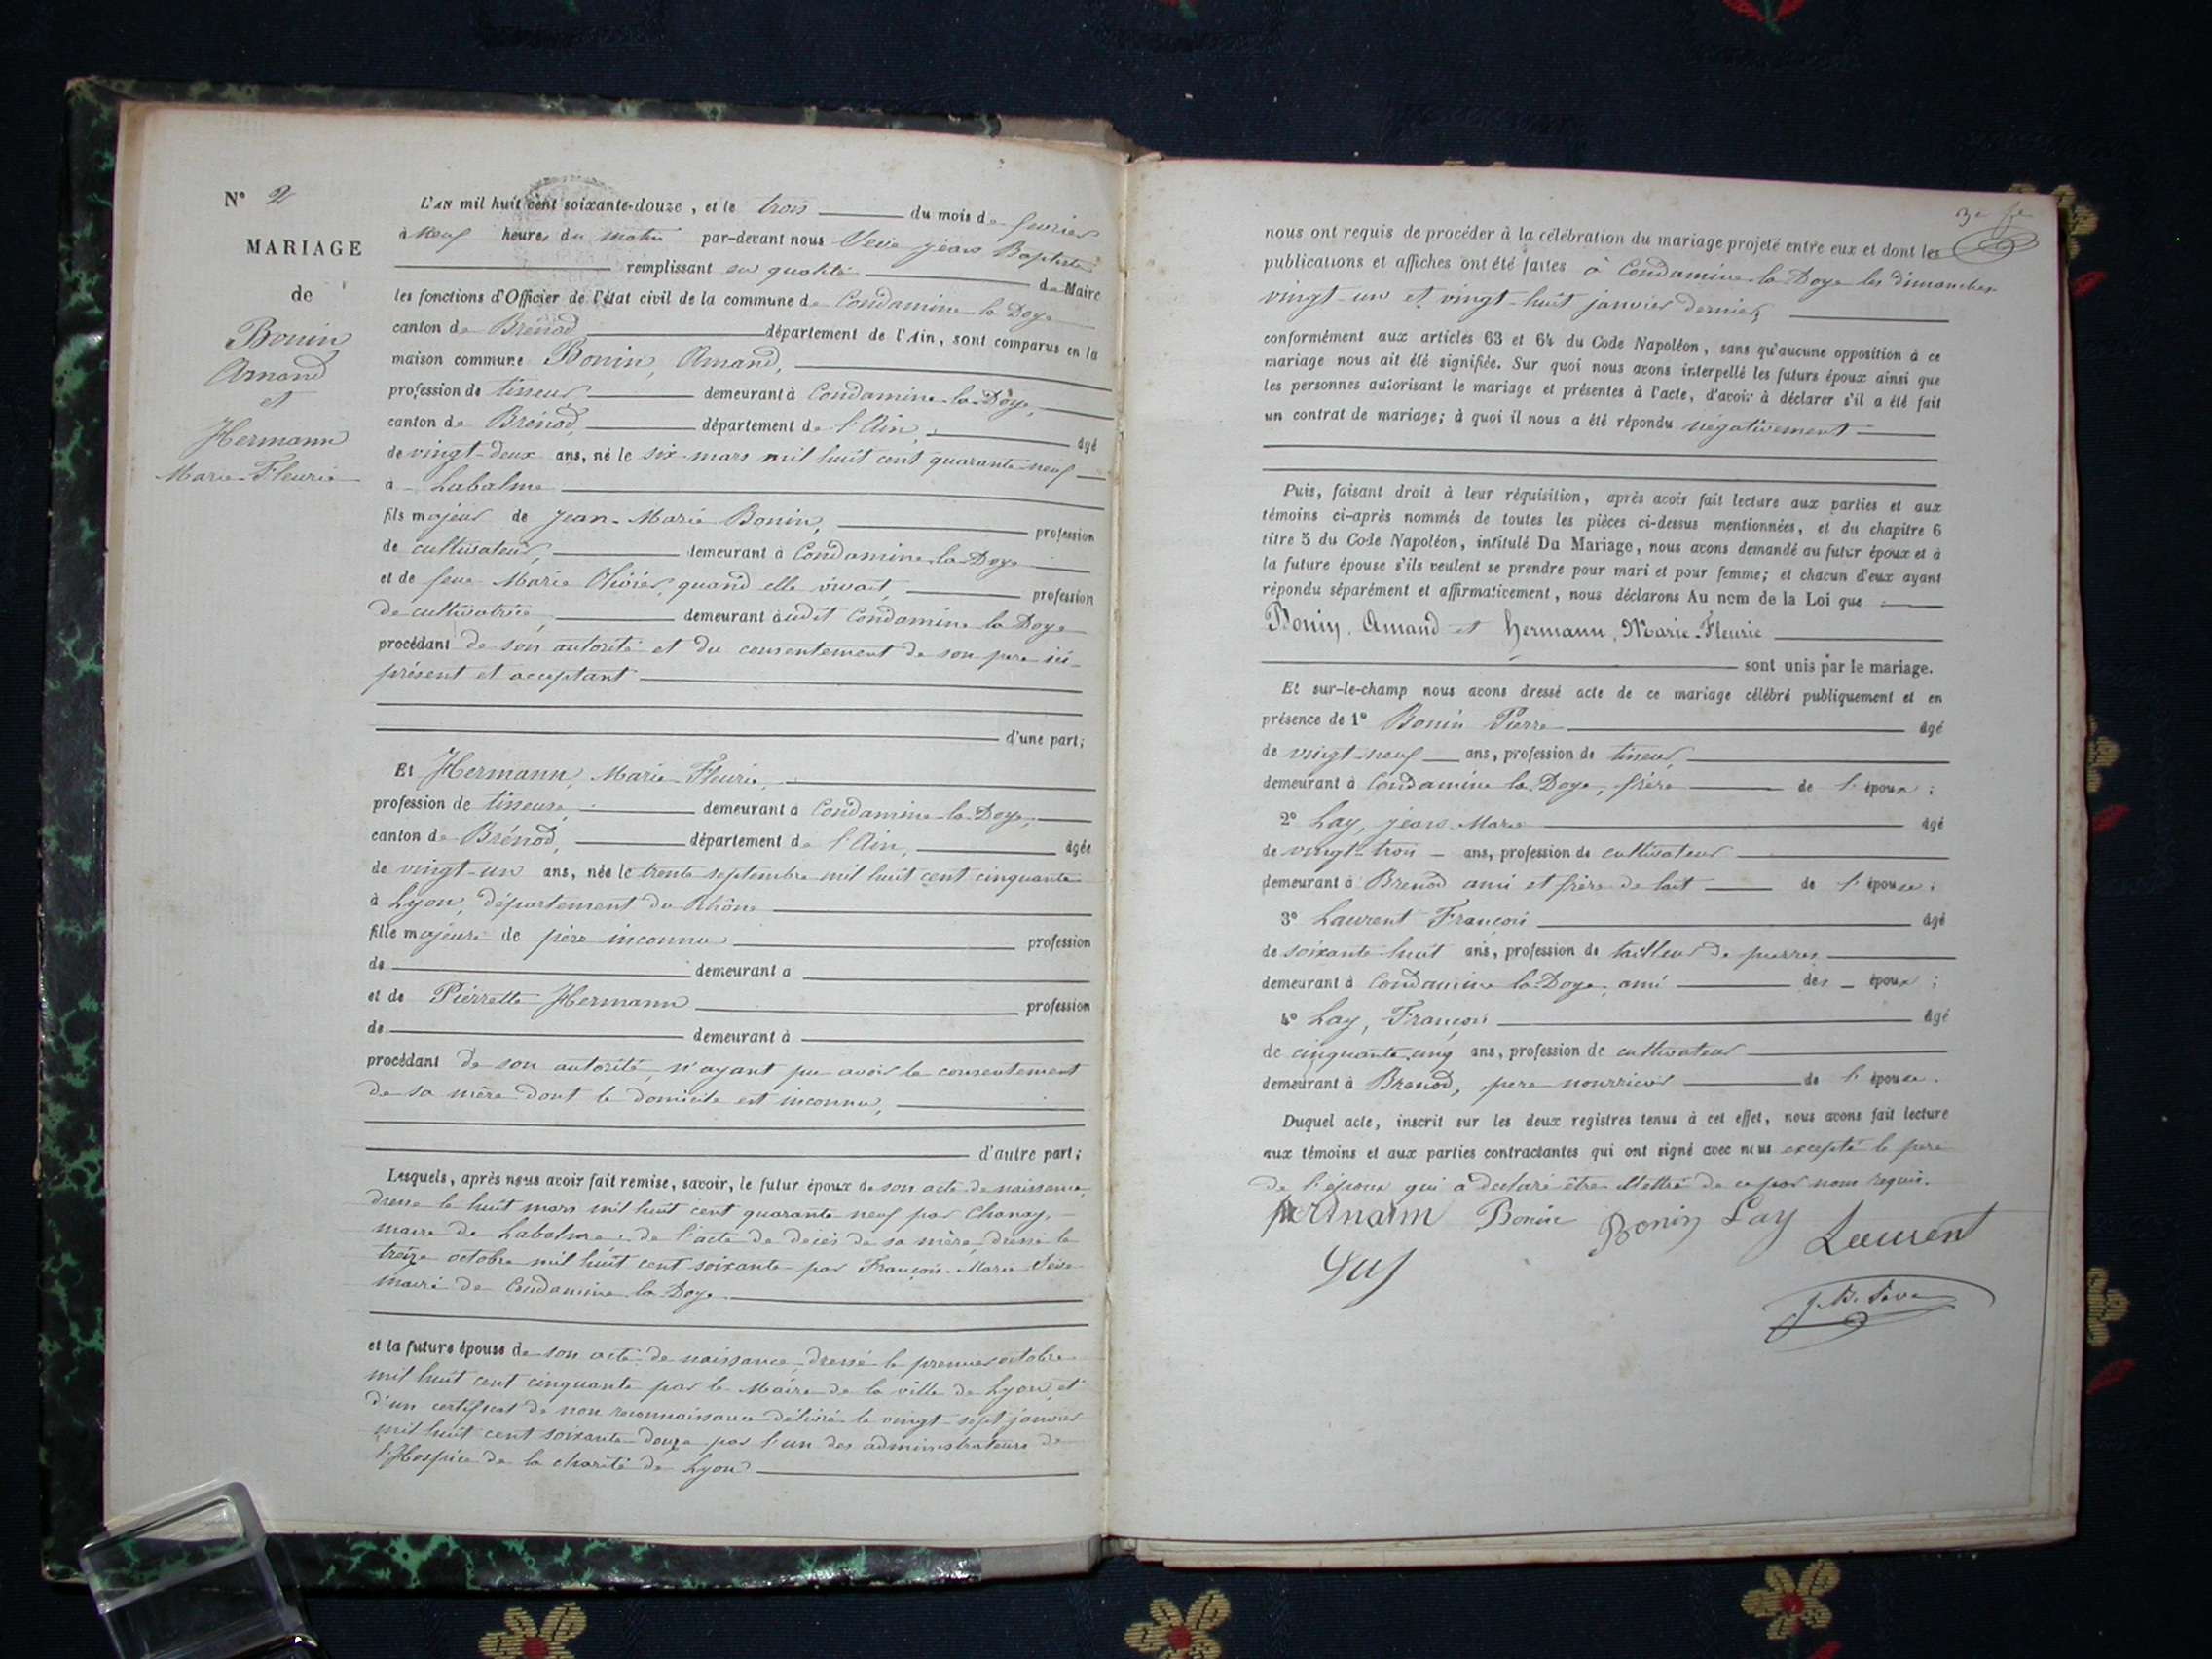 N° 2
MARIAGE
de
Bonin
Amand
et
Hermann
Marie-Fleurie
L'AN mil huit cent soixante-douze, et le trois du mois de février
à neuf heures du matin par-devant nous Sève Jean Baptiste
remplissant en qualité de Maire
les fonctions d'Officier de l'état civil de la commune de Condamine la Doye
canton de Brénod département de l'Ain, sont comparus en la
maison commune Bonin, Amand,
profession de tisseur demeurant à Condamine-la-Doye,
canton de Brénod, département de l'Ain, âgé
de vingt-deux ans, né le six mars mil huit cent quarante-neuf
à Labalme
fils majeur de Jean-Marie Bonin, profession
de cultivateur, demeurant à Condamine-la-Doye
et de feue Marie Olivier, quand elle vivait, profession
de cultivatrice, demeurant audit Condamine la Doye
procédant de son autorité et du consentement de son père ici
présent et acceptant
d'une part;
Et Hermann, Marie-Fleurie,
profession de tisseuse, demeurant à Condamine-la-Doye,
canton de Brénod, département de l'Ain, âgée
de vingt-un ans, née le trente septembre mil huit cent cinquante
à Lyon, département du Rhône
fille majeure de père inconnu profession
de demeurant à
et de Pierrette Hermann profession
de demeurant à
procédant de son autorité, n'ayant pu avoir le consentement
de sa mère dont le domicile est inconnu,
d'autre part;
Lesquels, après nous avoir fait remise, savoir, le futur époux de son acte de naissance,
dressé le huit mars mil huit cent quarante neuf par Chanay,
maire de Labalme; de l'acte de décès de sa mère, dressé le
treize octobre mil huit cent soixante par François-Marie Sève
maire de Condamine la Doye
et la future épouse de son acte de naissance, dressé le premier octobre
mil huit cent cinquante par le Maire de la ville de Lyon, et
d'un certificat de non reconnaissance délivré le vingt-sept janvier
mil huit cent soixante-douze par l'un des administrateurs de
l'Hospice de la charité de Lyon
3e fe
nous ont requis de procéder à la célébration du mariage projeté entre eux et dont les
publications et affiches ont été faites à Condamine-la-Doye les dimanches
vingt-un et vingt-huit janvier dernier,
conformément aux articles 63 et 64 du Code Napoléon, sans qu'aucune opposition à ce
mariage nous ait été signifiée. Sur quoi nous avons interpellé les futurs époux ainsi que
les personnes autorisant le mariage et présentes à l'acte, d'avoir à déclarer s'il a été fait
un contrat de mariage; à quoi il nous a été répondu négativement
Puis, faisant droit à leur réquisition, après avoir fait lecture aux parties et aux
témoins ci-après nommés de toutes les pièces ci-dessus mentionnées, et du chapitre 6
titre 5 du Code Napoléon, intitulé Du Mariage, nous avons demandé au futur époux et à
la future épouse s'ils veulent se prendre pour mari et pour femme; et chacun d'eux ayant
répondu séparément et affirmativement, nous déclarons Au nom de la Loi que
Bonin, Amand et Hermann, Marie-Fleurie
sont unis par le mariage.
Et sur-le-champ nous avons dressé acte de ce mariage célébré publiquement et en
présence de 1° Bonin Pierre âgé
de vingt-neuf ans, profession de tisseur,
demeurant à Condamine la Doye, frère de l'époux;
2° Lay, Jean-Marie âgé
de vingt-trois ans, profession de cultivateur
demeurant à Brenod ami et frère de lait de l'épouse;
3° Laurent François âgé
de soixante-huit ans, profession de tailleur de pierres
demeurant à Condamine la Doye, ami des époux;
4° Lay, François âgé
de cinquante-cinq ans, profession de cultivateur
demeurant à Brenod, père nourricier de l'épouse.
Duquel acte, inscrit sur les deux registres tenus à cet effet, nous avons fait lecture
aux témoins et aux parties contractantes qui ont signé avec nous excepté le père
de l'époux qui a déclaré être illettré de ce par nous requis.
Bonin Bonin Lay Laurent
Lay
J. B. Sève